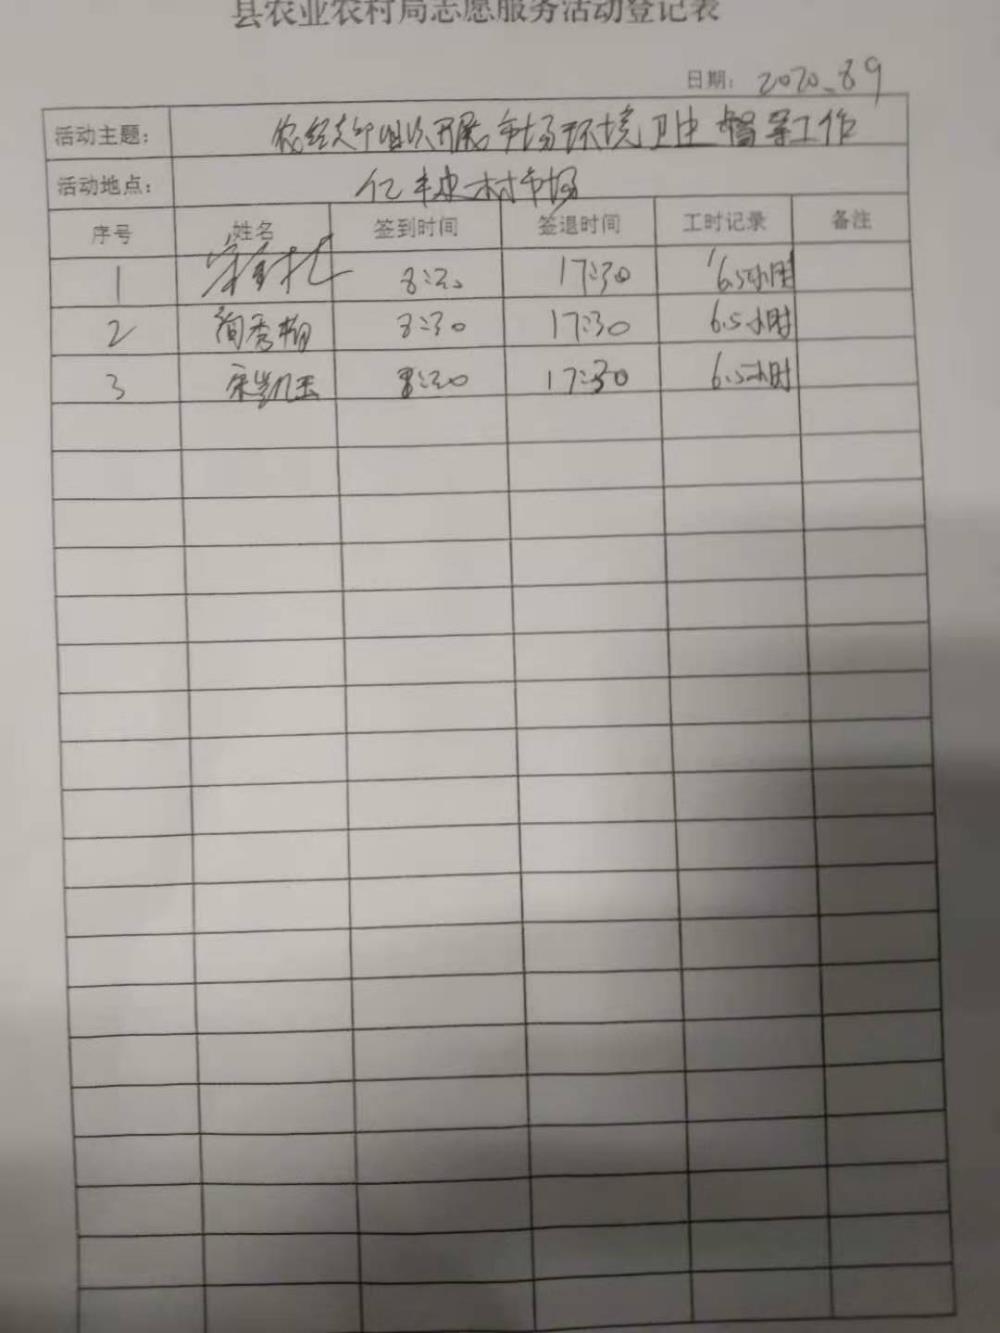 县农业农村局志愿服务活动登记表
日期: 2020.8 9
活动主题: 农经支部组织开展市场环境卫生督导工作
活动地点: 亿丰农村市场
序号 姓名 签到时间 签退时间 工时记录 备注
1 8:30 17:30 6.5小时
2 8:30 17:30 6.5小时
3 宋凯玉 8:30 17:30 6.5小时